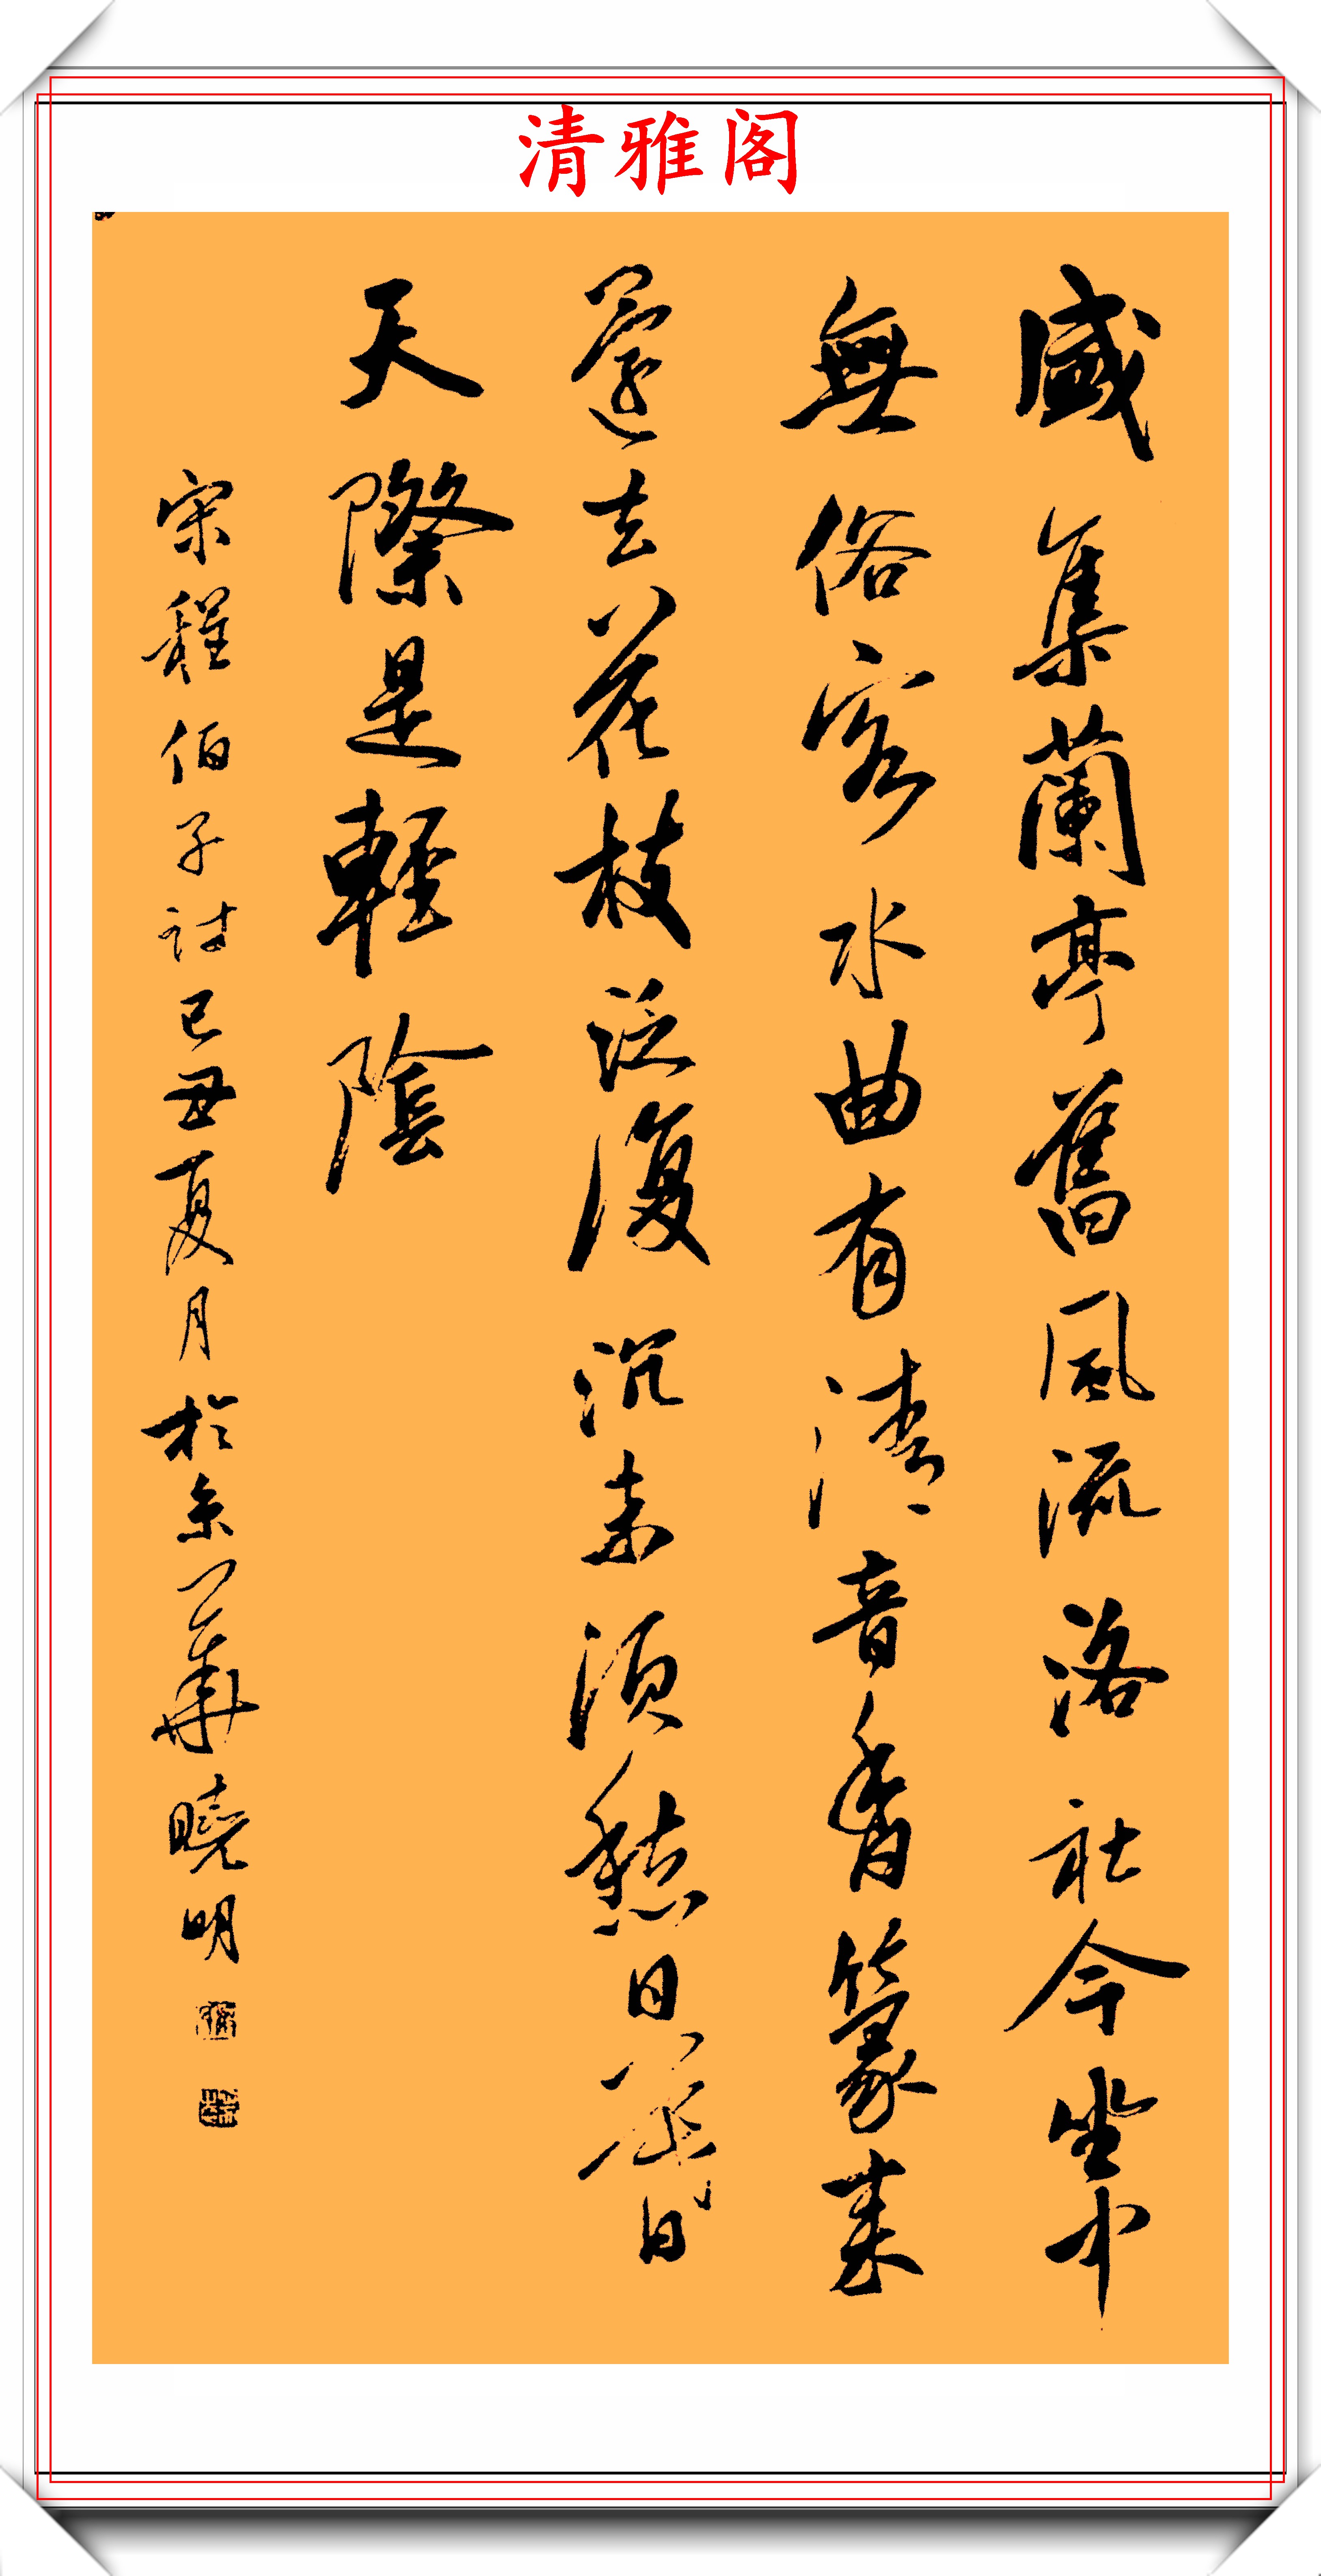 清雅阁
盛集蘭亭舊風流洛社今坐中
無俗客水曲有清音香篆来
還去花枝泛復沉未須愁日暮
天際是輕陰
宋程伯子詩己丑夏月於京華曉明